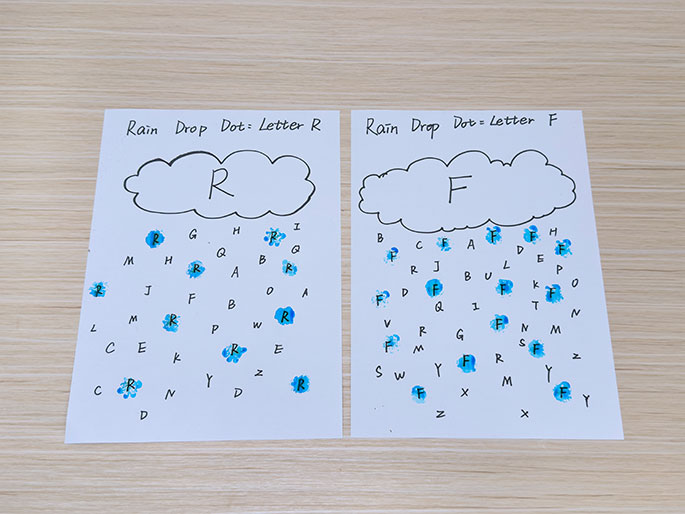 Rain Drop Dot = Letter R
R
G H I
R R
M H Q B Q
R A R
R J F B O A
L M R P W R
C E K R E
C R N Y D Z R
D
Rain Drop Dot = Letter F
F
B C F A F F H
F R J L D E F P
F D F B U F K F O
Q I T N
V R G F N M
F M F S F Z
S W Y R M Y
F X F Y
Z X